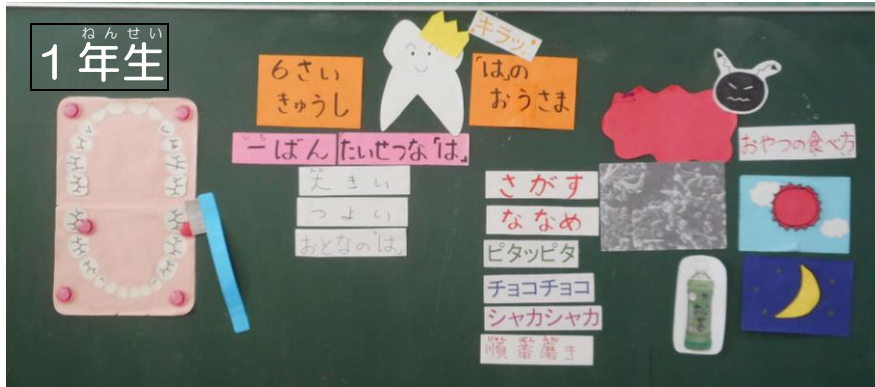 ねんせい
1年生
キラッ
6さい
きゅうし
「は」の
おうさま
いち
一ばん
たいせつな「は」
大きい
つよい
おとなの「は」
さがす
ななめ
ピタッピタ
チョコチョコ
シャカシャカ
順番磨き
おやつの食べ方